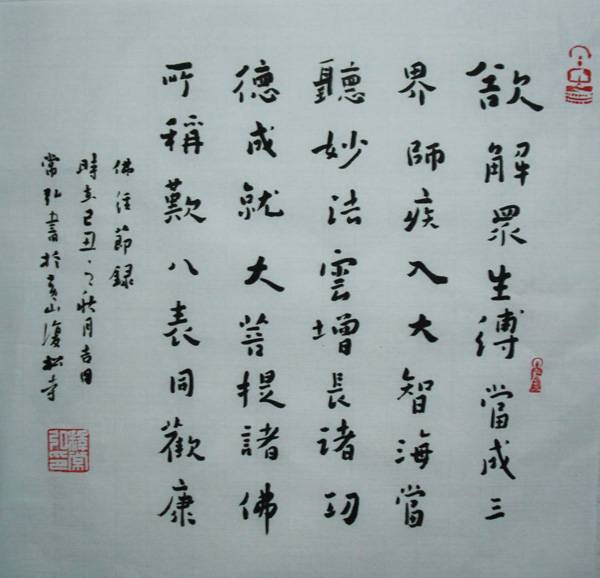 欲解眾生縛當成三
界師疾入大智海當
聽妙法雲增長諸功
德成就大菩提諸佛
所稱歎八表同歡康
佛經節録
時在己丑之秋月吉日
常弘書於青山復松寺